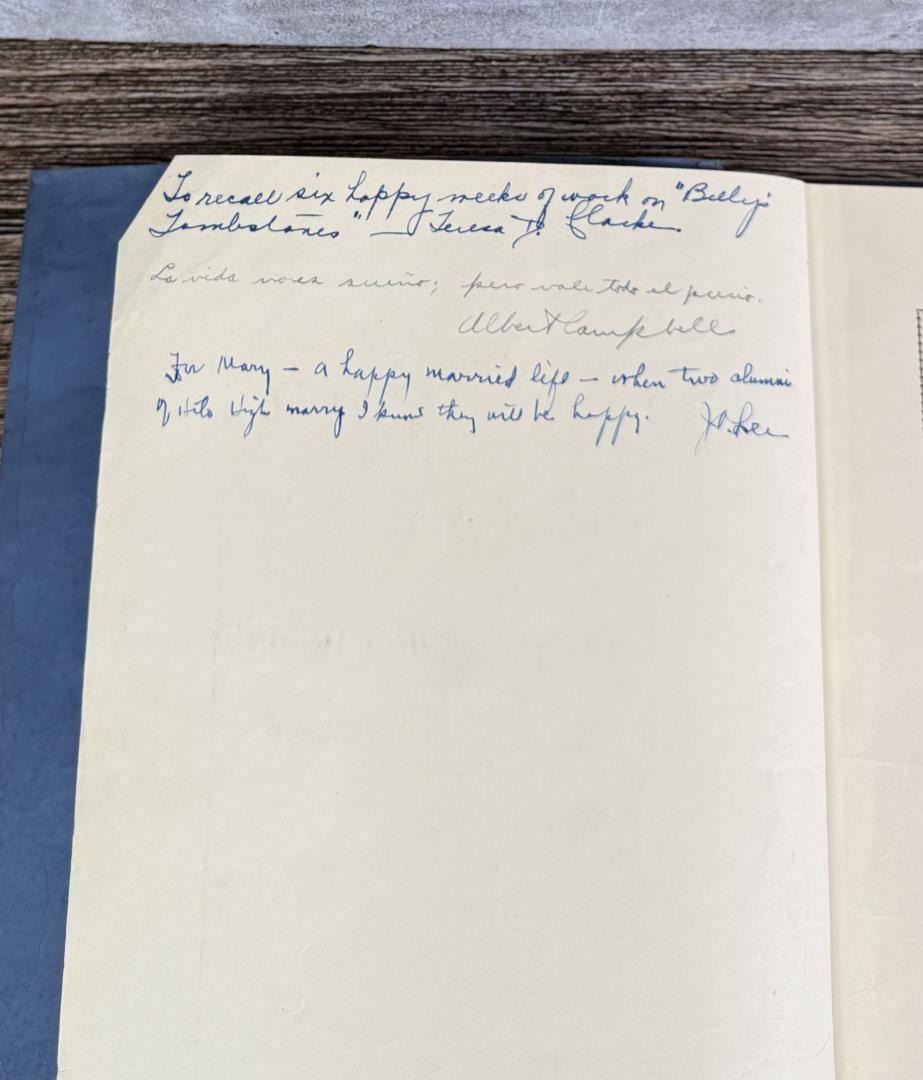 To recall six happy weeks of work on "Billy's
Tombstones" — Teresa D. Clarke
La vida no es sueño; pero vale todo el precio.
Albert Campbell
For Mary — a happy married life — when two alumni
of Hilo High marry I know they will be happy. Lee